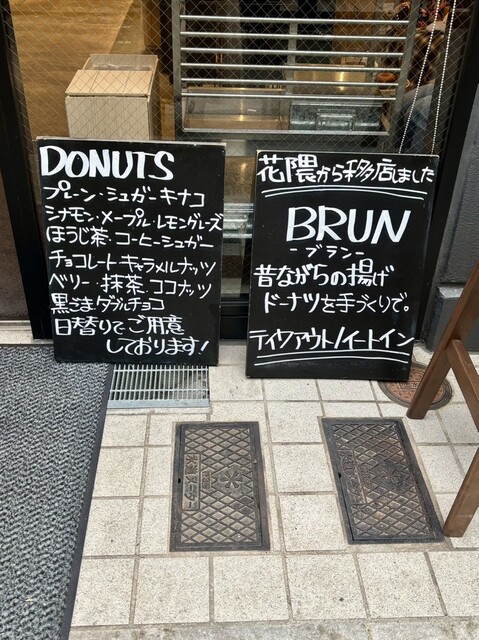 DONUTS
プレーン・シュガーキナコ
シナモン・メープル・レモングレーズ
ほうじ茶・コーヒーシュガー
チョコレートキャラメルナッツ
ベリー・抹茶・ココナッツ
黒ごまダブルチョコ
日替りでご用意
しております!
花隈から移店しました
BRUN
-ブラン-
昔ながらの揚げ
ドーナツを手づくりで。
テイクアウト/イートイン